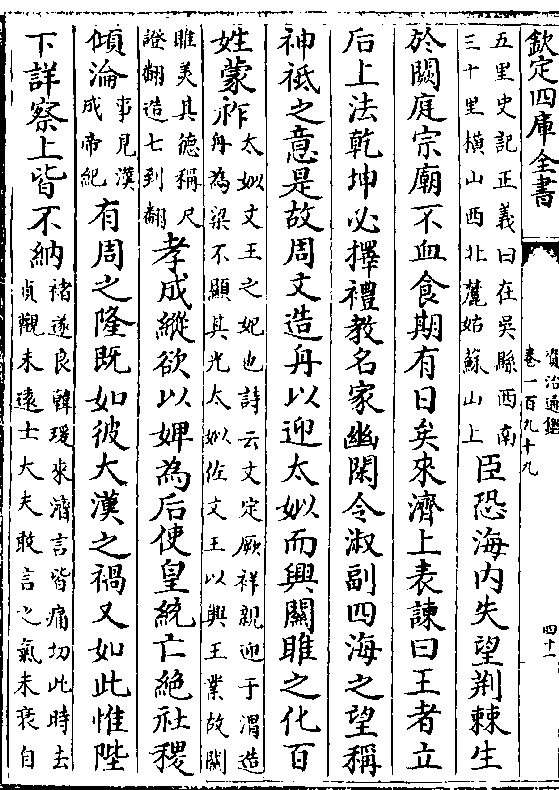 欽定四庫全書
資治通鑑
卷一百九十九
四十一
五里史記正義曰在吳縣西南
三十里橫山西北麓姑蘇山上
臣恐海内失望荆棘生
於闕庭宗廟不血食期有日矣來濟上表諫曰王者立
后上法乾坤必擇禮教名家幽閑令淑副四海之望稱
神祗之意是故周文造舟以迎太姒而興關雎之化百
姓蒙祚
太姒文王之妃也詩云文定厥祥親迎于渭造
舟為梁不顯其光太姒佐文王以興王業故關
雎美其德稱尺
證翻造七到翻
孝成縱欲以婢為后使皇統亡絶社稷
傾淪
事見漢
成帝紀
有周之隆既如彼大漢之禍又如此惟陛
下詳察上皆不納
褚遂良韓瑗來濟言皆痛切此時去
貞觀未遠士大夫敢言之氣未衰自